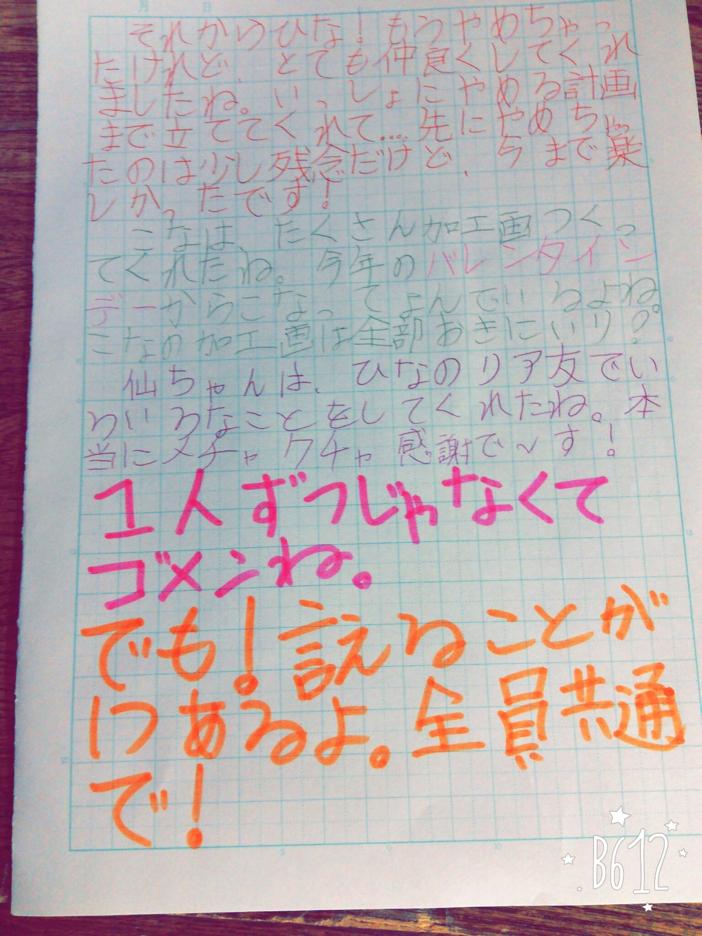 それからひな！もうやめちゃっ
たけれど、とても仲良くしてくれ
ましたね。いっしょにやめる計画
まで立ててくれて…先にやめちゃっ
たのは少し残念だけど、今まで楽
しかったです！
こなは、たくさん加工画つくっ
てくれたね。今年のバレンタイン
デーからこなってよんでいるよね。
こなの加工画は全部おきにいり？
仙ちゃんは、ひなのリア友でい
ろいろなことをしてくれたね。本
当にメチャクチャ感謝で〜す！
1人ずつじゃなくて
ゴメンね。
でも！言えることが
1つあるよ。全員共通
で！
B612